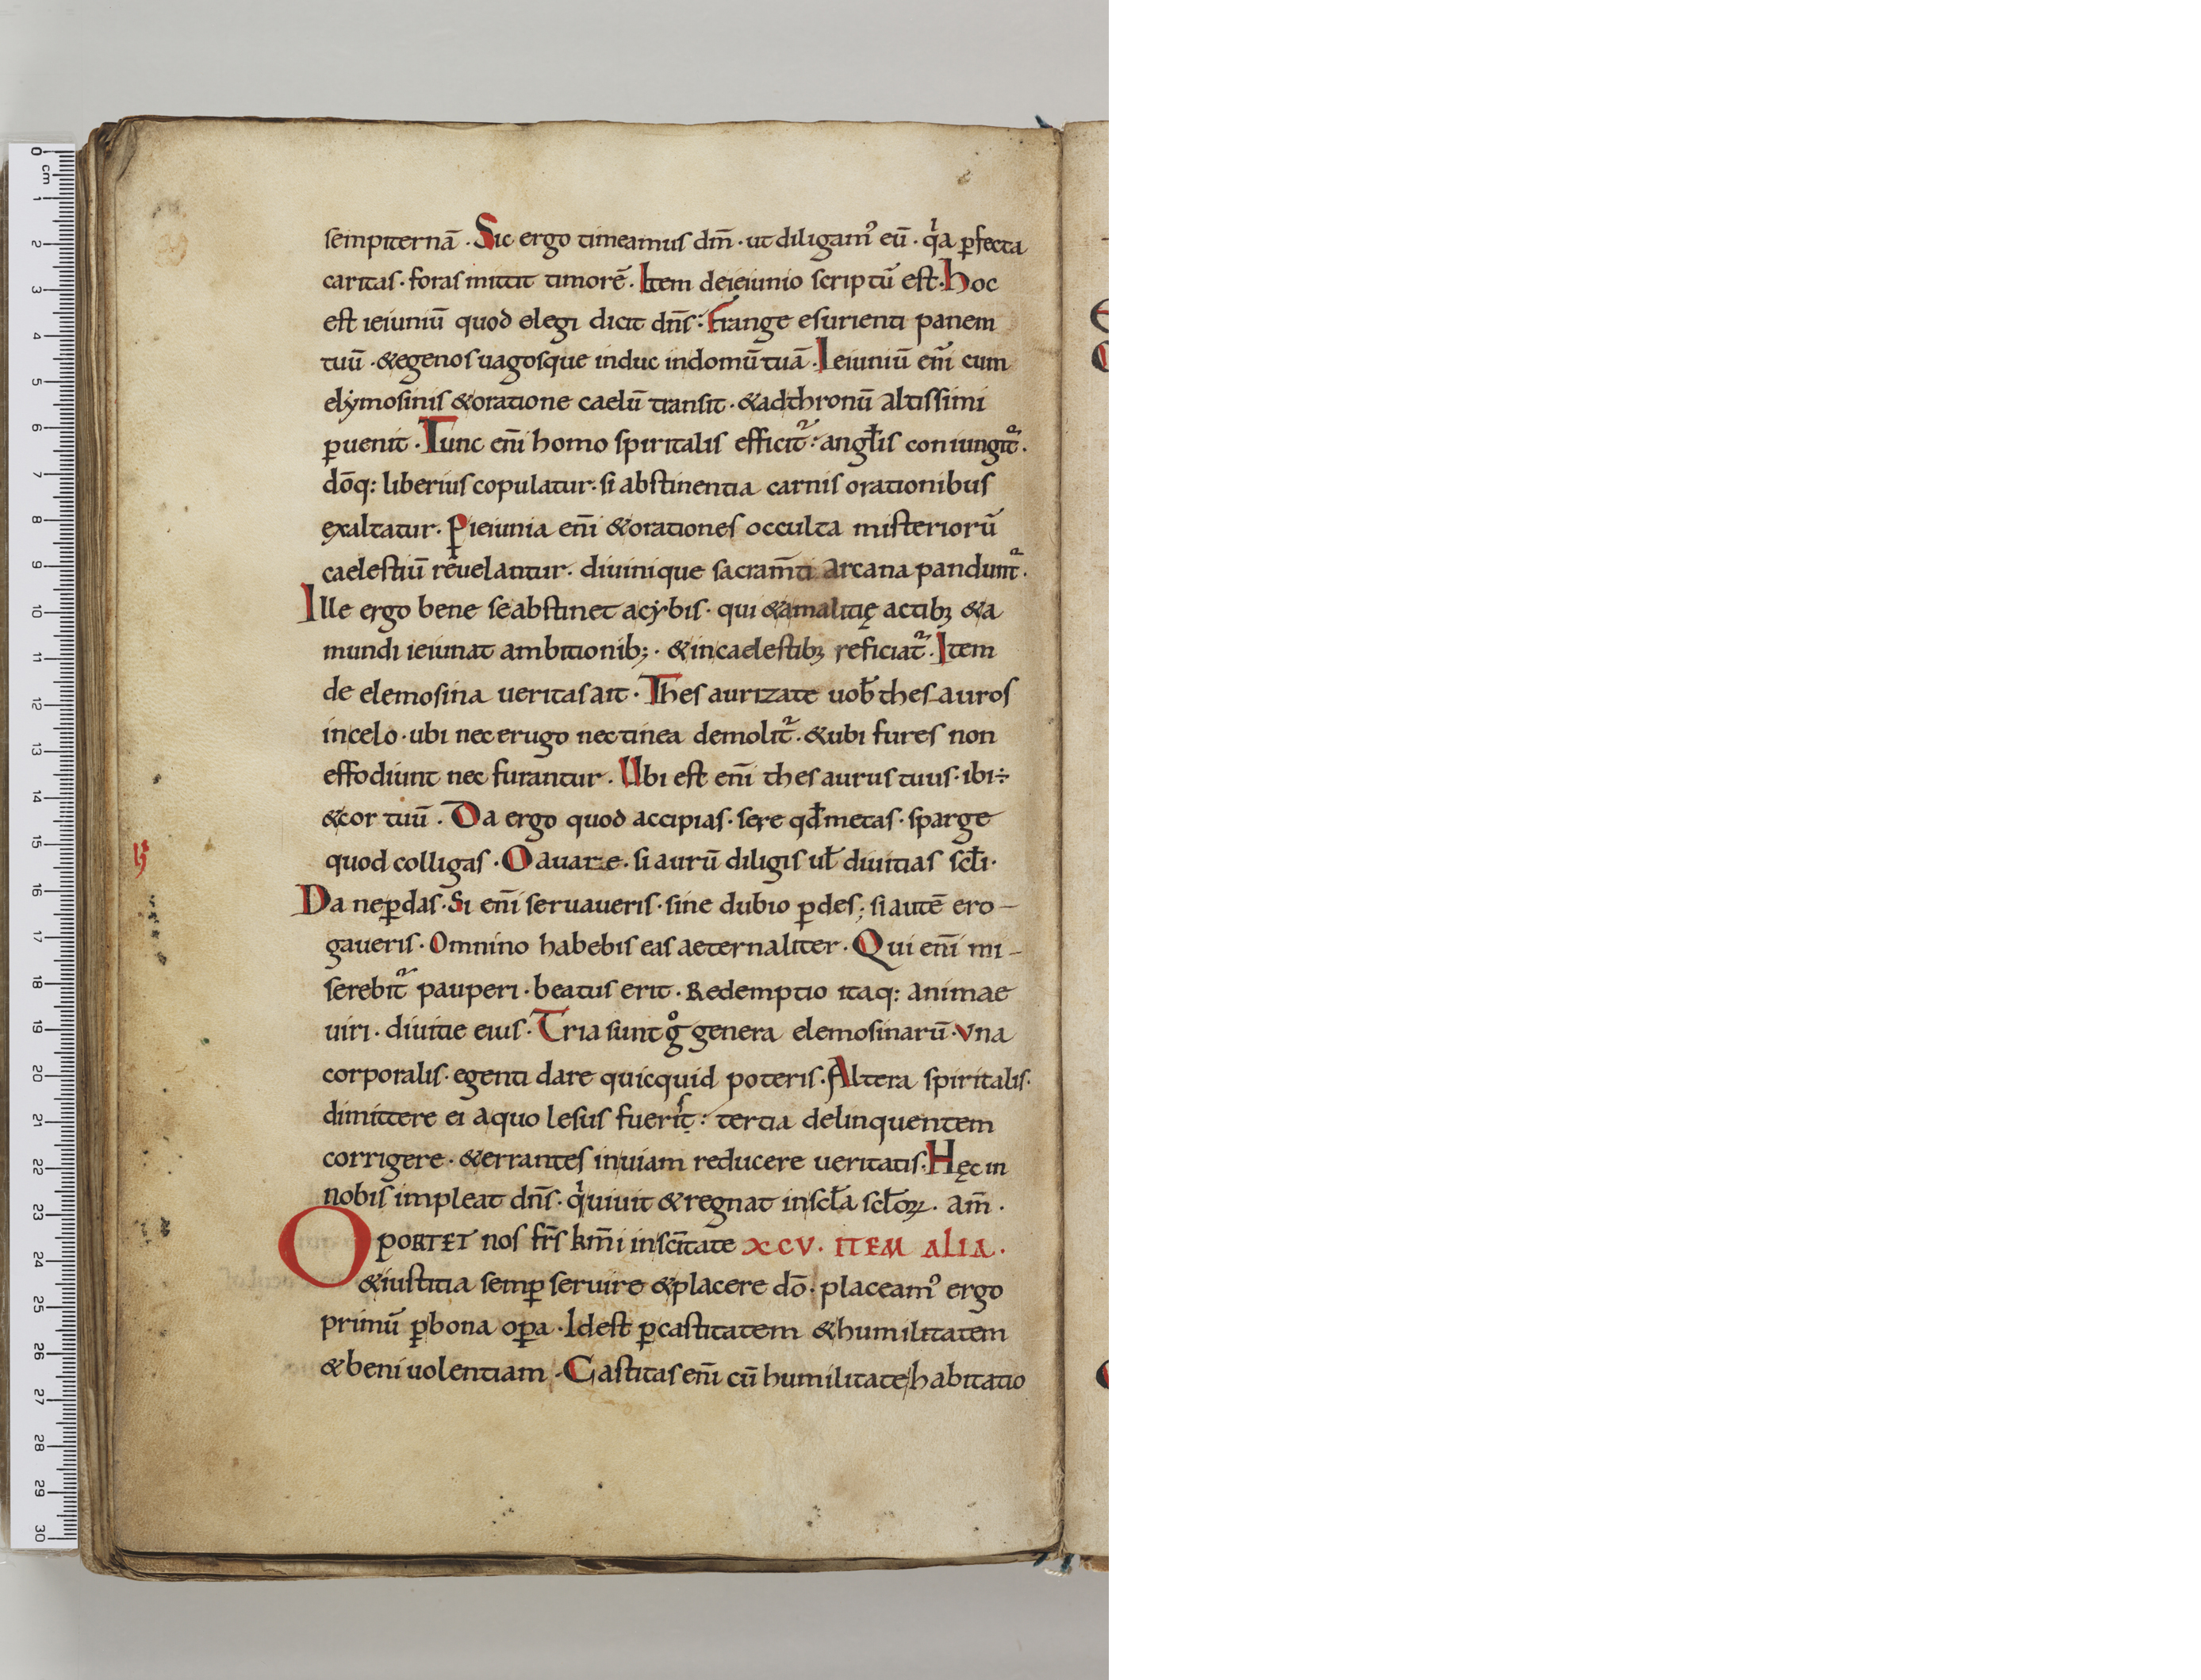 sempiternā. Sic ergo timeamus dm̄. ut diligam᾿ eū. qͥa ꝑfecta
caritas. foras mittit timorē. Item deieiunio scriptū est. hoc
est ieiuniū quod elegi dicit dn̄s: frange esurienti panem
tuū. &egenos uagosque induc indomū tuā. Ieiuniū enī cum
elẏmosinis &oratione caelū transit. &adthronū altissimi
ꝑuenit. Tunc enī homo spiritalis efficit᷑: angłis coniungit᷑.
dōq: liberius copulatur: si abstinentia carnis orationibus
exaltatur. Ꝑieiunia enī &orationes occulta misteriorū
caelestiū reuelantur. diuinique sacram̄ti arcana pandunt᷑.
Ille ergo bene seabstinet acẏbis. qui &amalitię actibꝫ &a
mundi ieiunat ambitionib;. &incaelestibꝫ reficiat᷑. Item
de elemosina ueritas ait. Thesaurizate uob̄ thesauros
incelo. ubi nec erugo nec tinea demolit᷑. &ubi fures non
effodiunt nec furantur. Ubi est enī thesaurus tuus. ibi÷
&cor tuū. Da ergo quod accipias. sere qd̄ metas. sparge
quod colligas. O auare. si aurū diligis uł diuitias scłi.
Da neꝑdas. Si enī seruaueris. sine dubio ꝑdes; si autē ero-
gaueris. Omnino habebis eas aeternaliter. Qui enī mi-
serebit᷑ pauperi. beatus erit. Redemptio itaq: animae
uiri. diuitie eius. Tria sunt gͦ genera elemosinarū. vna
corporalis. egenti dare quicquid poteris. Altera spiritalis.
dimittere ei aquo lesus fuerit: tertia delinquentem
corrigere. &errantes inuiam reducere ueritatis. Hęc in
nobis impleat dn̄s. qͥ uiuit &regnat inscła scłoꝝ. am̄.
OPORTET nos fr̄s km̄i insc̄itate XCV. ITEM ALIA.
&iustitia semꝑ seruire &placere dō. placeam᾿ ergo
primū ꝑbona oꝑa. Idest ꝑcastitatem &humilitatem
&beniuolentiam. Castitas enī cū humilitate habitatio